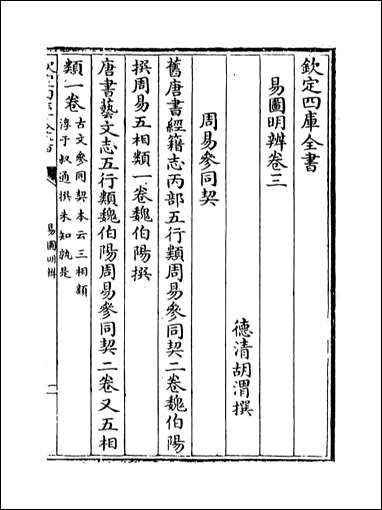 欽定四庫全書
易圖明辨卷三
德清胡渭撰
周易參同契
舊唐書經籍志丙部五行類周易參同契二卷魏伯陽
撰周易五相類一卷魏伯陽撰
唐書藝文志五行類魏伯陽周易參同契二卷又五相
類一卷古文參同契本云三相類
淳于叔通撰未知孰是
易圖明辨